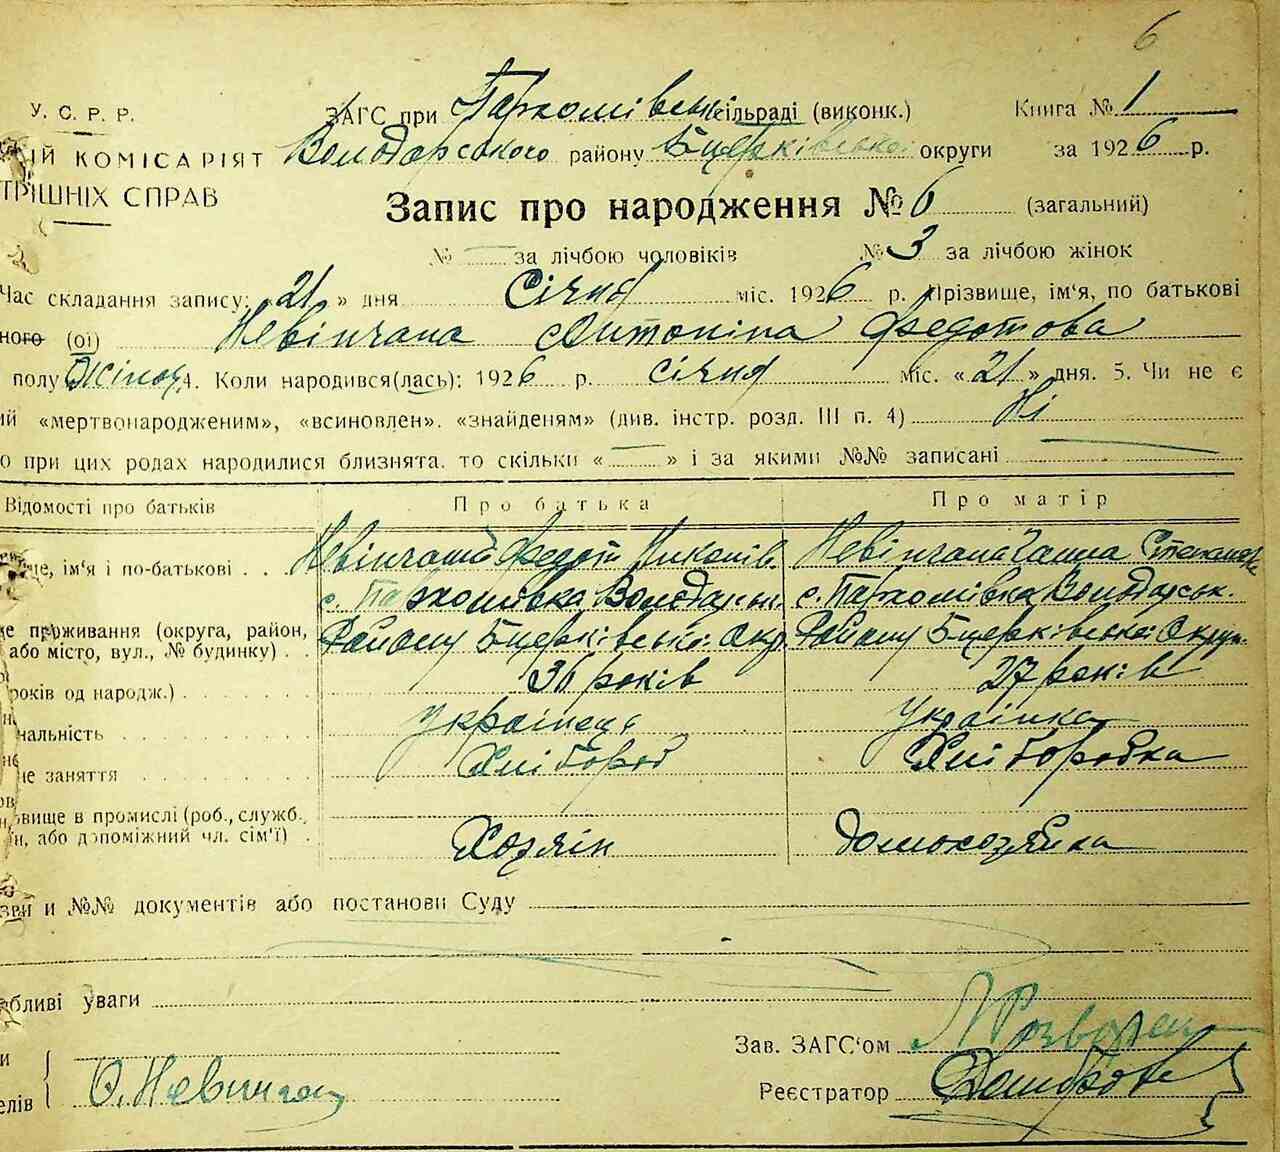 6
У. С. Р. Р. ЗАГС при Пархомівські сільраді (виконк.) Книга № 1
ІЙ КОМІСАРІЯТ Володарського району Бцерківської округи за 1926 р.
ТРІШНІХ СПРАВ Запис про народження № 6 (загальний)
№ — за лічбою чоловіків № 3 за лічбою жінок
Час складання запису: 21 » дня Січня міс. 1926 р. Прізвище, ім'я, по батькові
ного (ої) Невінчана Антоніна Федотова
полу Жіноч. 4. Коли народився(лась): 1926 р. січня міс. «21» дня. 5. Чи не є
ий «мертвонародженим», «всиновлен». «знайденям» (див. інстр. розд. III п. 4) Ні
о при цих родах народилися близнята. то скільки « — » і за якими №№ записані —
Відомості про батьків Про батька Про матір
ще, ім'я і по-батькові . . Невінчаний Федот Никонів. Невінчана Ганна Степанов
с. Пархомівка Володарськ. с. Пархомівка Володарськ.
це проживання (округа, район, Району Бцерківської Окр. Району Бцерківської Округ.
або місто, вул., № будинку) . .
років од народж.) 36 років 27 років
нальність Українець Українка
не заняття Хлібороб Хліборобка
овище в промислі (роб., служб.,
н, або допоміжний чл. сім'ї) . Хозяін домохозяйка
зви и №№ документів або постанови Суду
обливі уваги
и Зав. ЗАГС'ом
елів О. Невинчан Реєстратор